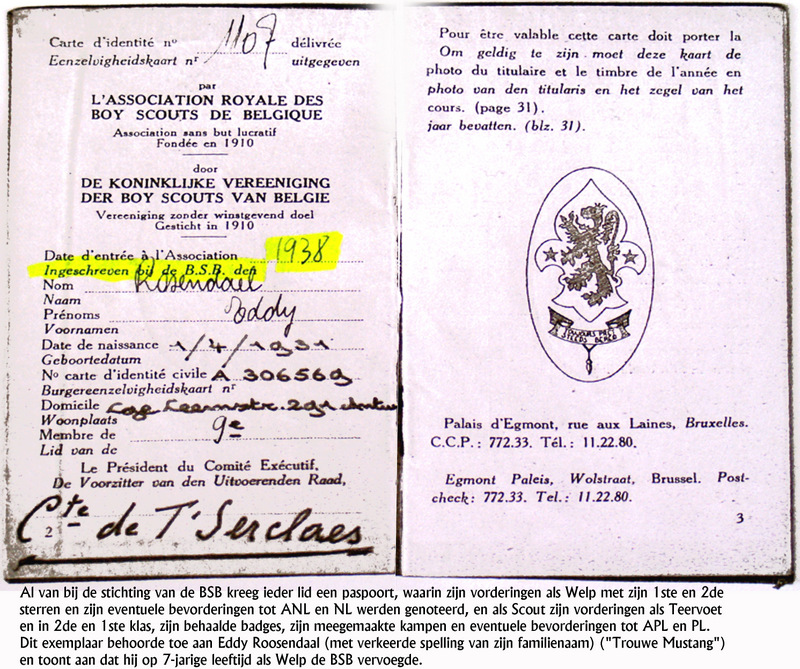 Carte d'identité nº 1107 délivrée
Eenzelvigheidskaart nr uitgegeven
par
L'ASSOCIATION ROYALE DES
BOY SCOUTS DE BELGIQUE
Association sans but lucratif
Fondée en 1910
door
DE KONINKLIJKE VEREENIGING
DER BOY SCOUTS VAN BELGIE
Vereeniging zonder winstgevend doel
Gesticht in 1910
Date d'entrée à l'Association 1938
Ingeschreven bij de B.S.B. den
Nom Rosendael
Naam
Prénoms Eddy
Voornamen
Date de naissance 1/4/1931
Geboortedatum
Nº carte d'identité civile A 306569
Burgereenzelvigheidskaart nr
Domicile
Woonplaats
Membre de 9e
Lid van de
Le Président du Comité Exécutif,
De Voorzitter van den Uitvoerenden Raad,
Cte de T'Serclaes
2
Pour être valable cette carte doit porter la
Om geldig te zijn moet deze kaart de
photo du titulaire et le timbre de l'année en
photo van den titularis en het zegel van het
cours. (page 31).
jaar bevatten. (blz. 31).
TOUJOURS PRET
STEEDS BEREID
Palais d'Egmont, rue aux Laines, Bruxelles.
C.C.P.: 772.33. Tél.: 11.22.80.
Egmont Paleis, Wolstraat, Brussel. Post-
check: 772.33. Tel.: 11.22.80.
3
Al van bij de stichting van de BSB kreeg ieder lid een paspoort, waarin zijn vorderingen als Welp met zijn 1ste en 2de
sterren en zijn eventuele bevorderingen tot ANL en NL werden genoteerd, en als Scout zijn vorderingen als Teervoet
en in 2de en 1ste klas, zijn behaalde badges, zijn meegemaakte kampen en eventuele bevorderingen tot APL en PL.
Dit exemplaar behoorde toe aan Eddy Roosendaal (met verkeerde spelling van zijn familienaam) ("Trouwe Mustang")
en toont aan dat hij op 7-jarige leeftijd als Welp de BSB vervoegde.